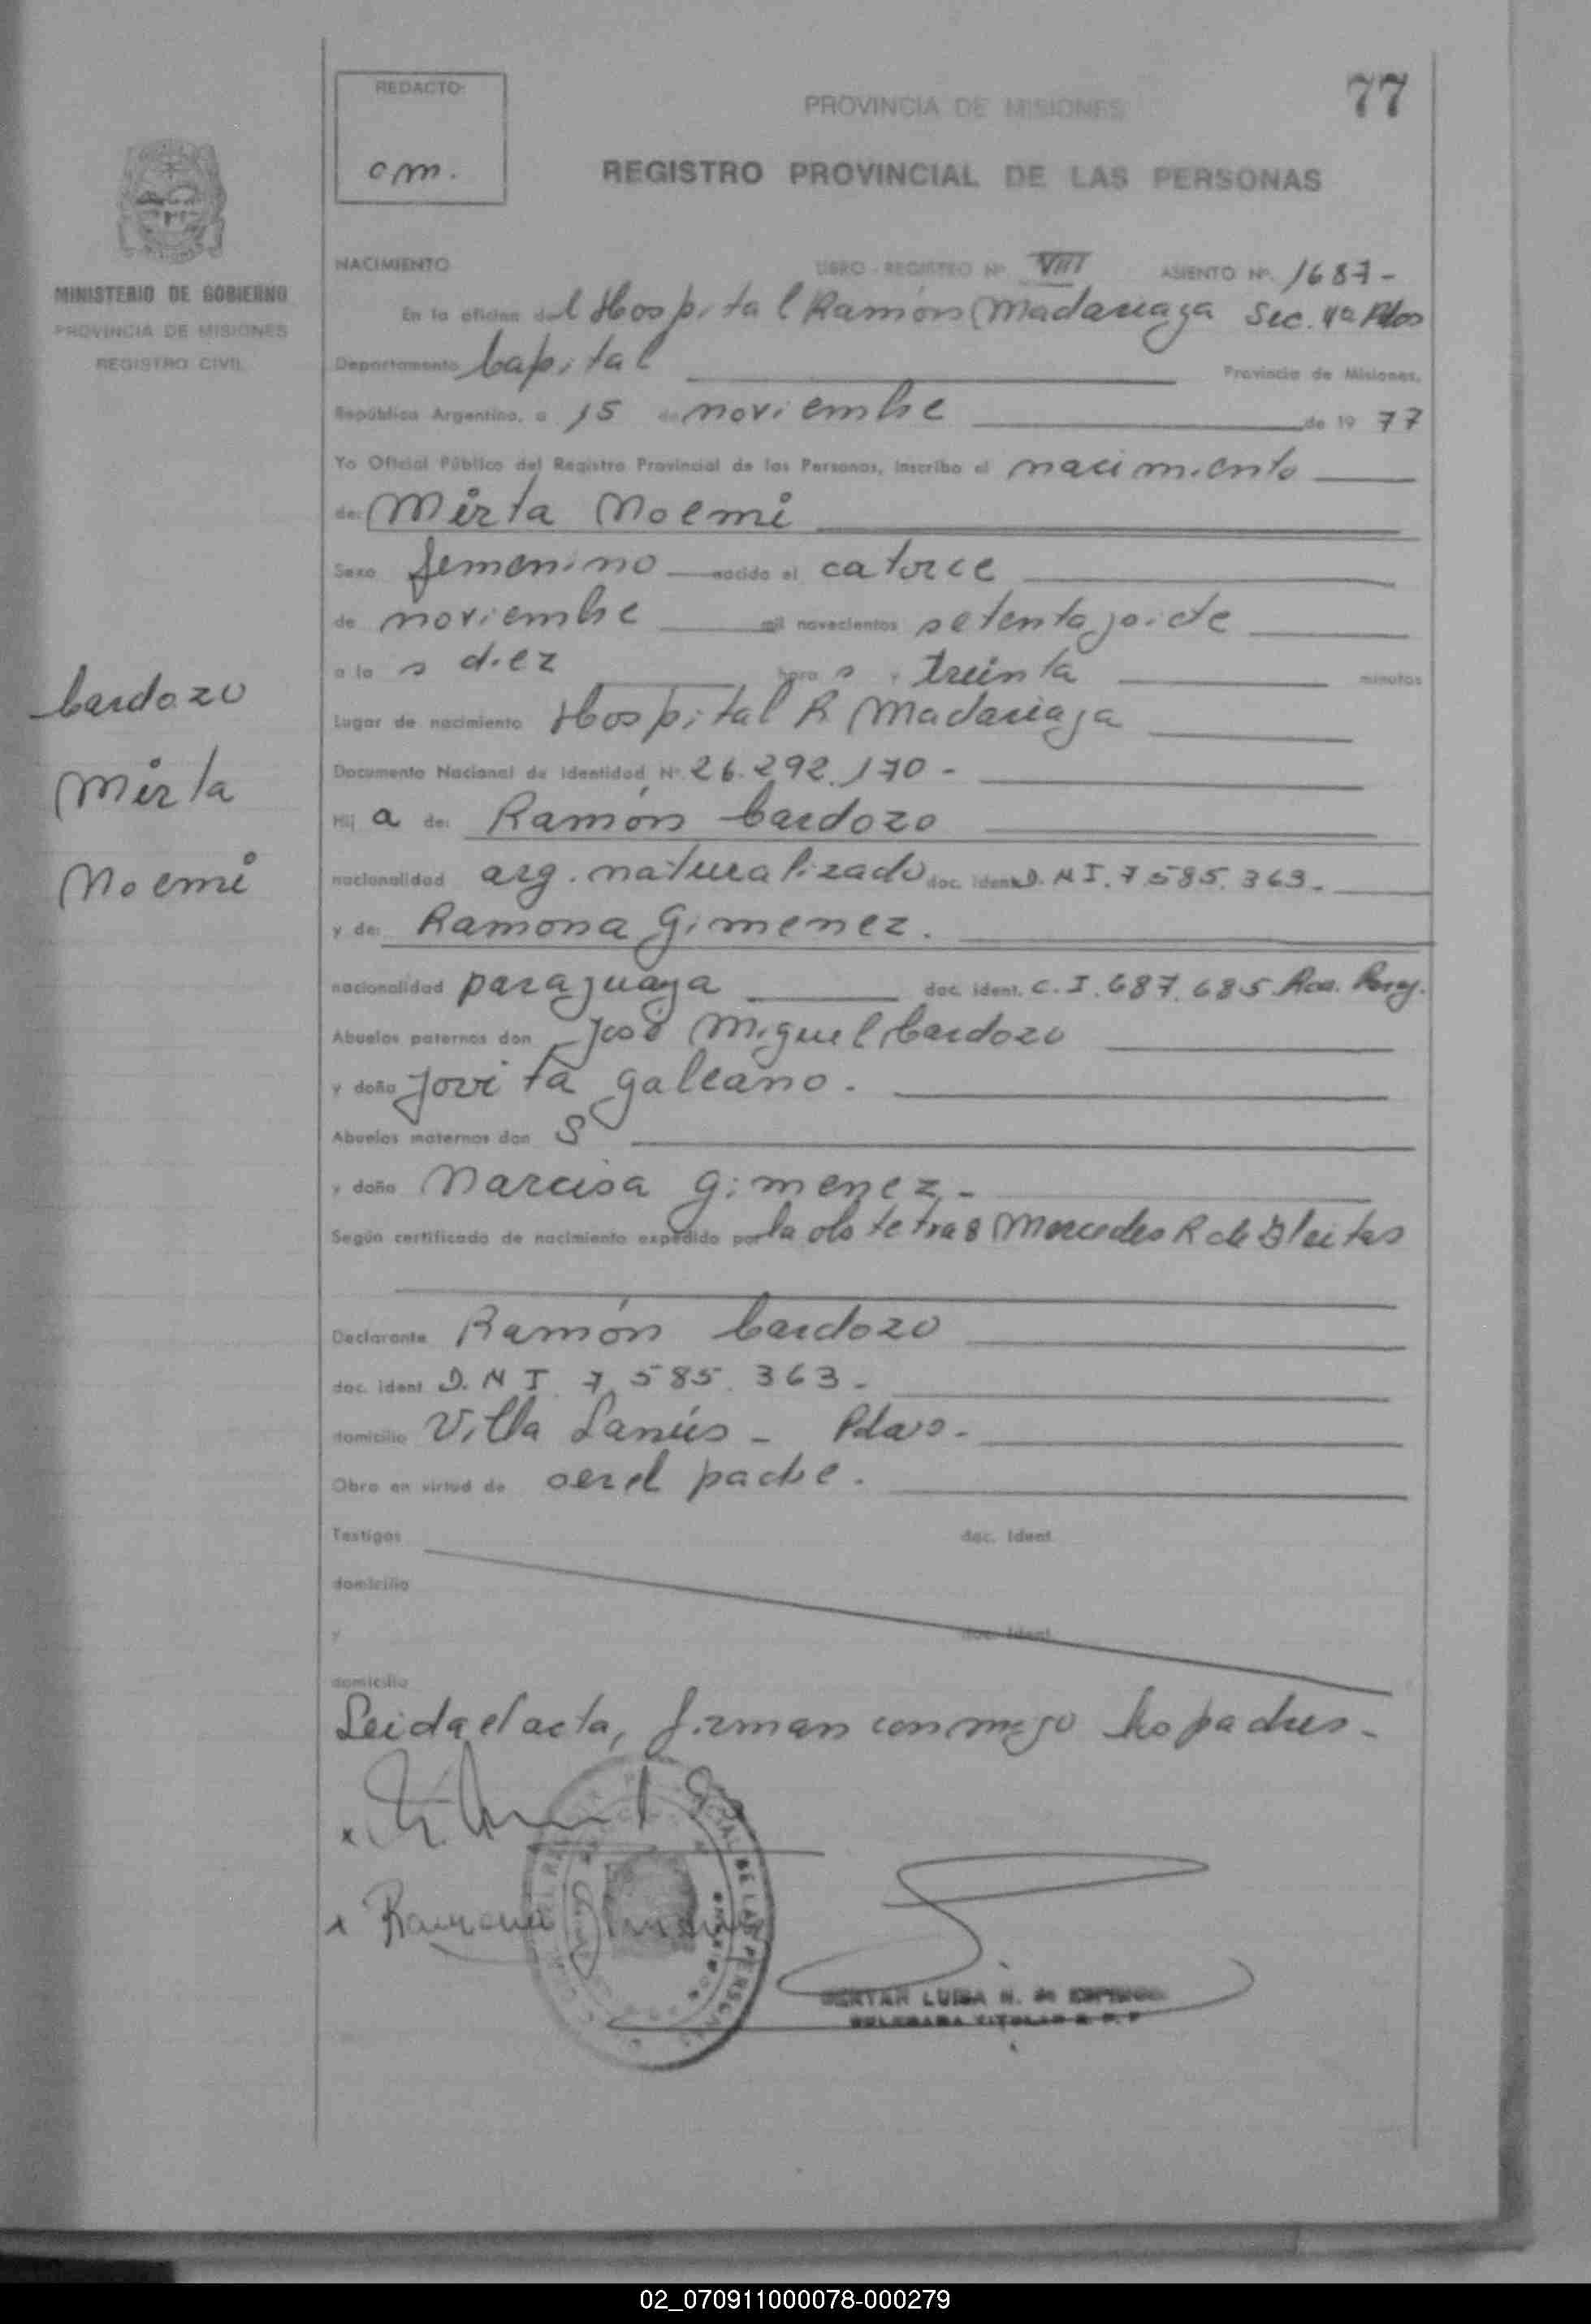 77
REDACTO:
om.
PROVINCIA DE MISIONES
REGISTRO PROVINCIAL DE LAS PERSONAS
MINISTERIO DE GOBIERNO
PROVINCIA DE MISIONES
REGISTRO CIVIL
NACIMIENTO LIBRO - REGISTRO Nº VIII ASIENTO Nº. 1687-
En la oficina del Hospital Ramón Madariaga Sec. 4a Pdas
Departamento Capital Provincia de Misiones,
República Argentina, a 15 de noviembre de 19 77
Yo Oficial Público del Registro Provincial de las Personas, inscribo el nacimiento
de: Mirta Noemi
Sexo femenino nacido el catorce
de noviembre mil novecientos setenta y siete
a la s diez hora s y treinta minutos
Lugar de nacimiento Hospital R Madariaga
Documento Nacional de Identidad Nº. 26.292.170-
Hij a de: Ramón Cardozo
nacionalidad arg. naturalizado doc. ident. D.N.I. 7.585.363.
y de: Ramona Gimenez.
nacionalidad paraguaya doc. ident. C.I. 687.685 Rca. Parag.
Abuelos paternos don José Miguel Cardozo
y doña Jovita Galeano.
Abuelos maternos don S
y doña Narcisa Gimenez-
Según certificado de nacimiento expedido por la obstetra Mercedes R de Fleitas
Declarante Ramón Cardozo
doc. ident D.N I 7.585.363-
domicilio Villa Lanús - Pdas-
Obra en virtud de ser el padre.
Testigos doc. Ident.
domicilio
y doc. Ident.
domicilio
Leida el acta, firman conmigo los padres-
Cardozo
Mirta
Noemi
x
x Ramona
LUISA N. de
02_070911000078-000279